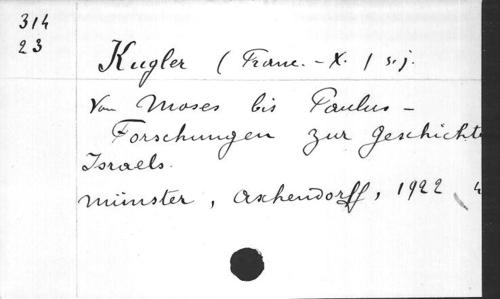 314
23
Kugler (Franc.-X.) s.j.
Von Moses bis Paulus -
Forschungen zur Geschichte
Israels.
Münster, Aschendorff, 1922